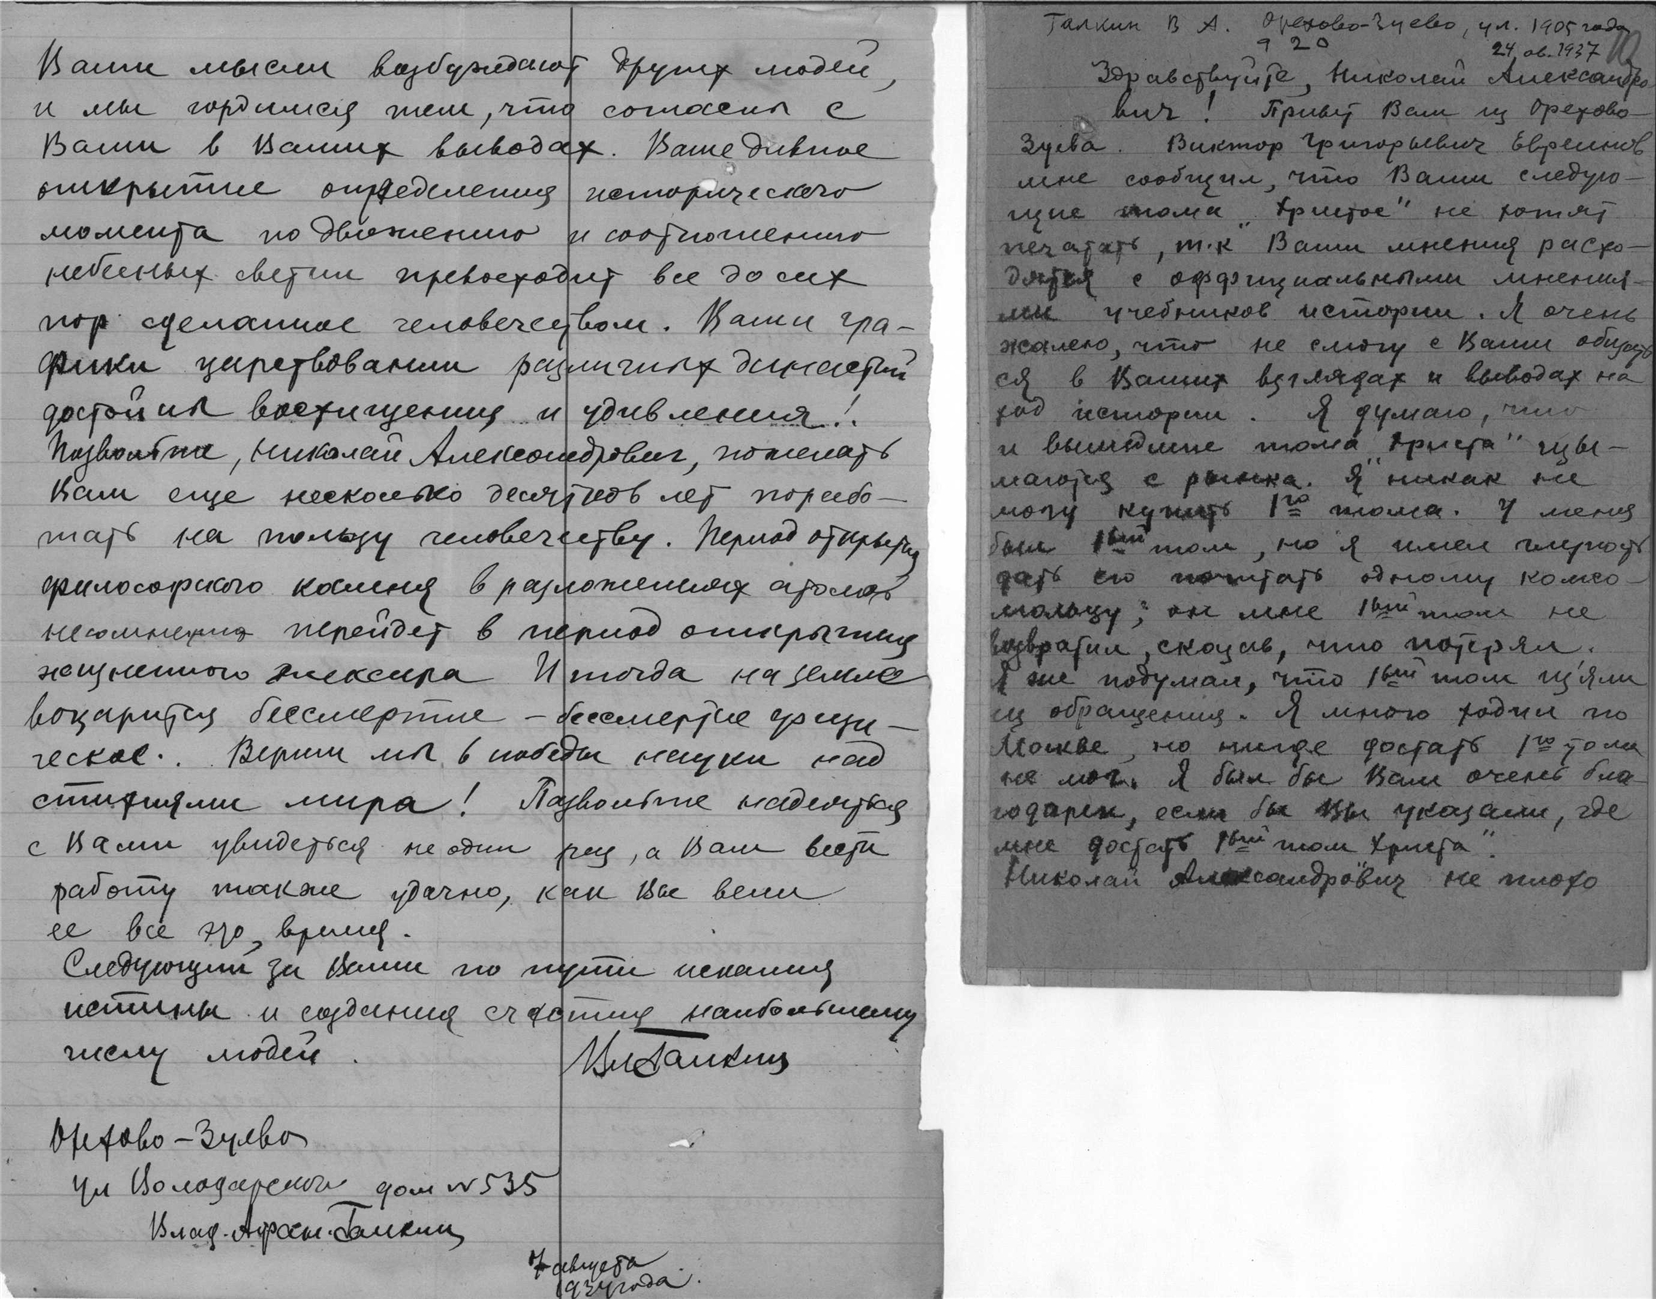 Ваши мысли возбуждают других людей,
и мы гордимся тем, что согласны с
Вами в Ваших выводах. Ваше дивное
открытие определения исторического
момента по движению и соотношению
небесных светил превосходит все до сих
пор сделанное человечеством. Ваши гра-
фики царствовании различных династий
достойны восхищения и удивления!
Позвольте, Николай Александрович, пожелать
Вам еще несколько десятков лет порабо-
тать на пользу человечеству. Период открытия
философского камня в разложениях атомов
несомненно перейдет в период открытия
жизненного элексира И тогда на земле
воцарится бессмертие – бессмертие физи-
ческое. Верим мы в победы науки над
стихиями мира! Позвольте надеяться
с Вами увидеться не один раз, а Вам вести
работу также удачно, как Вы вели
ее все это время.
Следующий за Вами по пути искания
истины и создания счастия наибольшему
числу людей.
Вл Галкин
Орехово-Зуево
ул Володарского дом № 535
Влад. Афан. Галкин
7 августа
1934 года.
Галкин В А. Орехово-Зуево, ул. 1905 года
9 20
24 ав. 1937
Здравствуйте, Николай Александро-
вич! Привет Вам из Орехово-
Зуева. Виктор Григорьевич Евреинов
мне сообщил, что Ваши следую-
щие тома "Христос" не хотят
печатать, т.к Ваши мнения расхо-
дятся с оффициальными мнения-
ми учебников истории. Я очень
жалею, что не смогу с Вами общать
ся в Ваших взглядах и выводах на
ход истории. Я думаю, что
и вышедшие тома "Христа" изы-
маются с рынка. Я никак не
могу купить 1го тома. У меня
был 1ый том, но я имел глупость
дать его почитать одному комсо-
мольцу; он мне 1ый том не
возвратил, сказав, что потерял.
Я же подумал, что 1ый том изъяли
из обращения. Я много ходил по
Москве, но нигде достать 1го тома
не мог. Я был бы Вам очень бла-
годарен, если бы Вы указали, где
мне достать 1ый том "Христа".
Николай Александрович не плохо